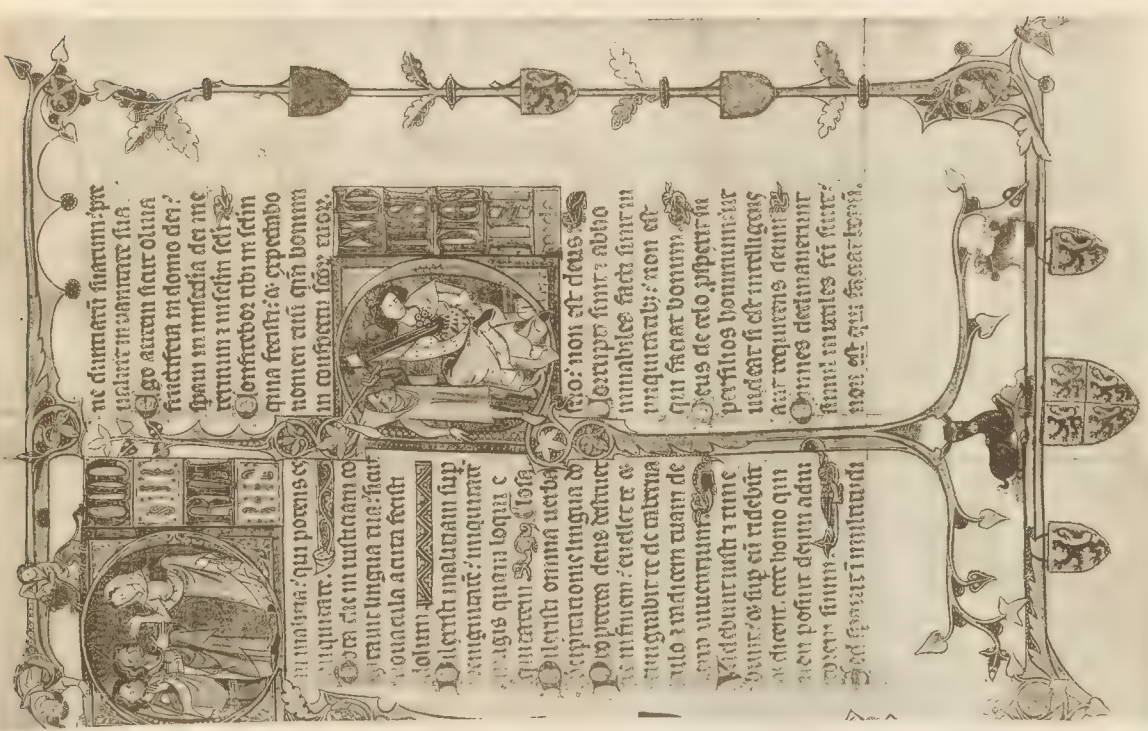 in malicia: qui potens es
iniquitate.
Tota die iniusticiam co
gitauit lingua tua: sicut
nouacula acuta fecisti
dolum.
Dilexisti maliciam sup
benignitatē: iniquitatē
magis quam loqui e
quitatem
Dilexisti omnia uerba
precipitationis lingua do
Propterea deus destruet
te in finem: euellet te et
emigrabit te de tabna
culo et radicem tuam de
terra uiuentium
Videbunt iusti et time
bunt: et sup eū ridebūt
et dicent. ecce homo qui
non posuit deum adiu
torem suum
Sed sperauit in multitudi
ne diuitiarū suarum: et pre
ualuit in uanitate sua.
Ego autem sicut oliua
fructifera in domo dei:
speraui in misericordia dei me
eternum et in seculum seculi
Confitebor tibi in seculum
quia fecisti: et expectabo
nomen tuū qm̄ bonum
in conspectu scōꝝ tuoꝝ.
suo: non est deus
Corrupti sunt et abho
minabiles facti sunt in
iniquitatibꝫ: non est
qui faciat bonum
Deus de celo prospexit in
per filios hominum: ut
uideat si est intelligens
aut requirens deum
Omnes declinauerunt
simul inutiles fcī sunt:
non est qui faciat bonū.